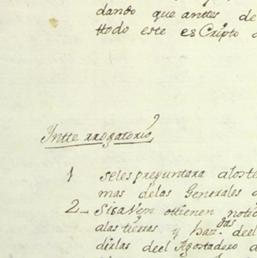 dando que antes de
ttodo este esCripto
Intte rrogatorio
1 seles preguntara alos te
mas delas Generales
2 Si saven ottienen notic
alas tierras y haz.das de el
dielas de el Agostadero